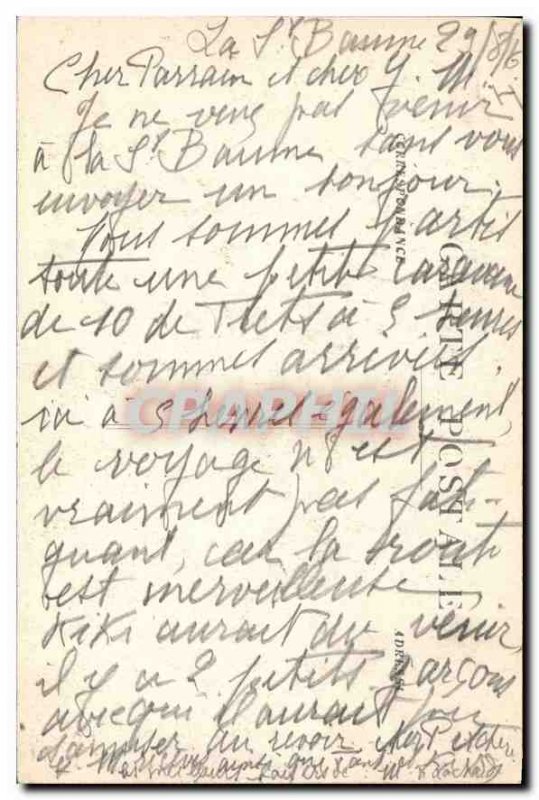 La Ste Baume 29/8/16
Cher Parrain et cher
Je ne veux pas venir
à la Ste Baume sans vous
envoyer un bonjour.
Nous sommes partis
toute une petite caravane
de 10 de Trets à 5 heures
et sommes arrivés
ici à 9 heures également,
le voyage n'est
vraiment pas fati-
guant, car la route
est merveilleuse
Kiki aurait du venir,
il y a 2 petits garçons
avec qui il aurait pu
s'amuser au revoir
CARTE POSTALE
CORRESPONDANCE
ADRESSE
CPAPHIL